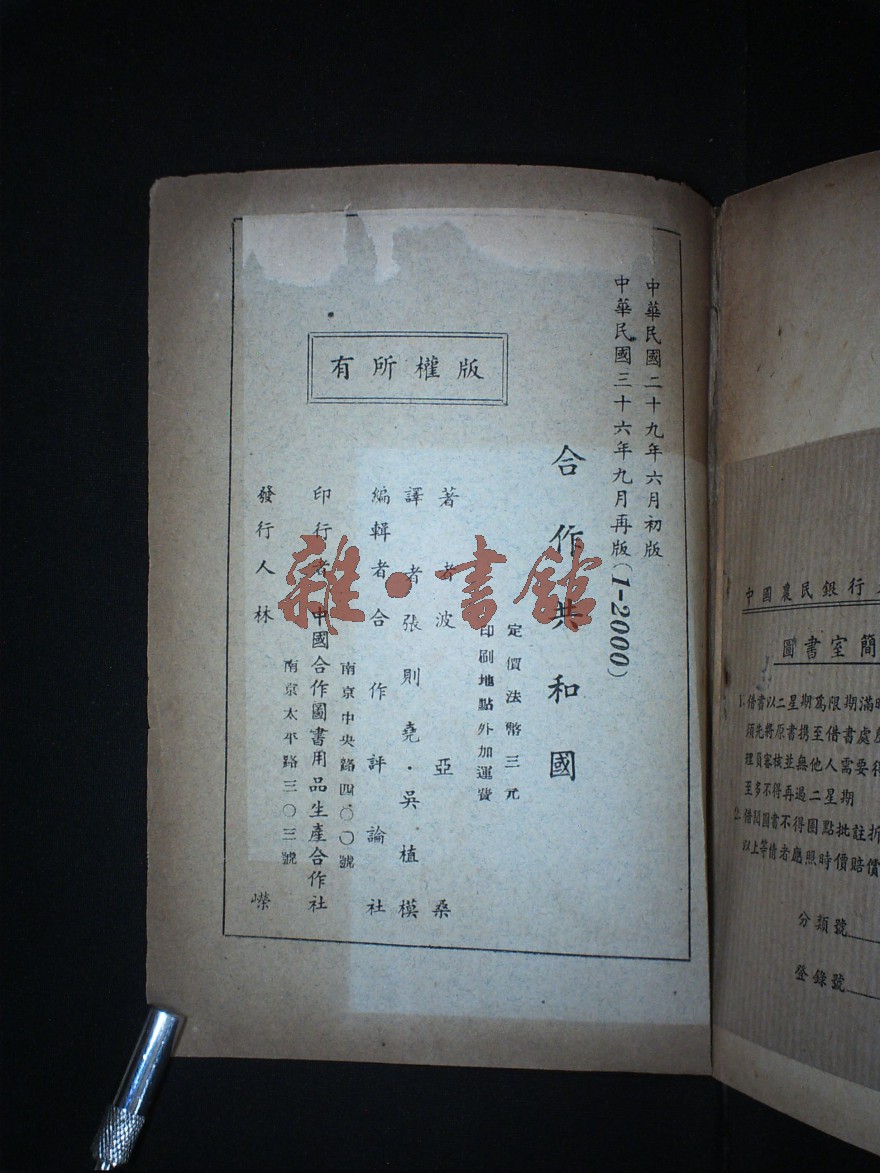 中華民國二十九年六月初版
中華民國三十六年九月再版(1-2000)
合作共和國
定價法幣三元
印刷地點外加運費
著者波亞桑
譯者張則堯·吳植模
編輯者合作評論社
南京中央路四〇〇號
印行者中國合作圖書用品生產合作社
南京太平路三〇三號
發行人林嶸
版權所有
雜·書館
中國農民銀行
圖書室簡
1.借書以二星期為限期滿時
須先將原書携至借書處
理員審核並無他人需要得
至多不得再過二星期
2.借閱圖書不得圈點批註折
以上等情者應照時價賠償
分類號
登錄號